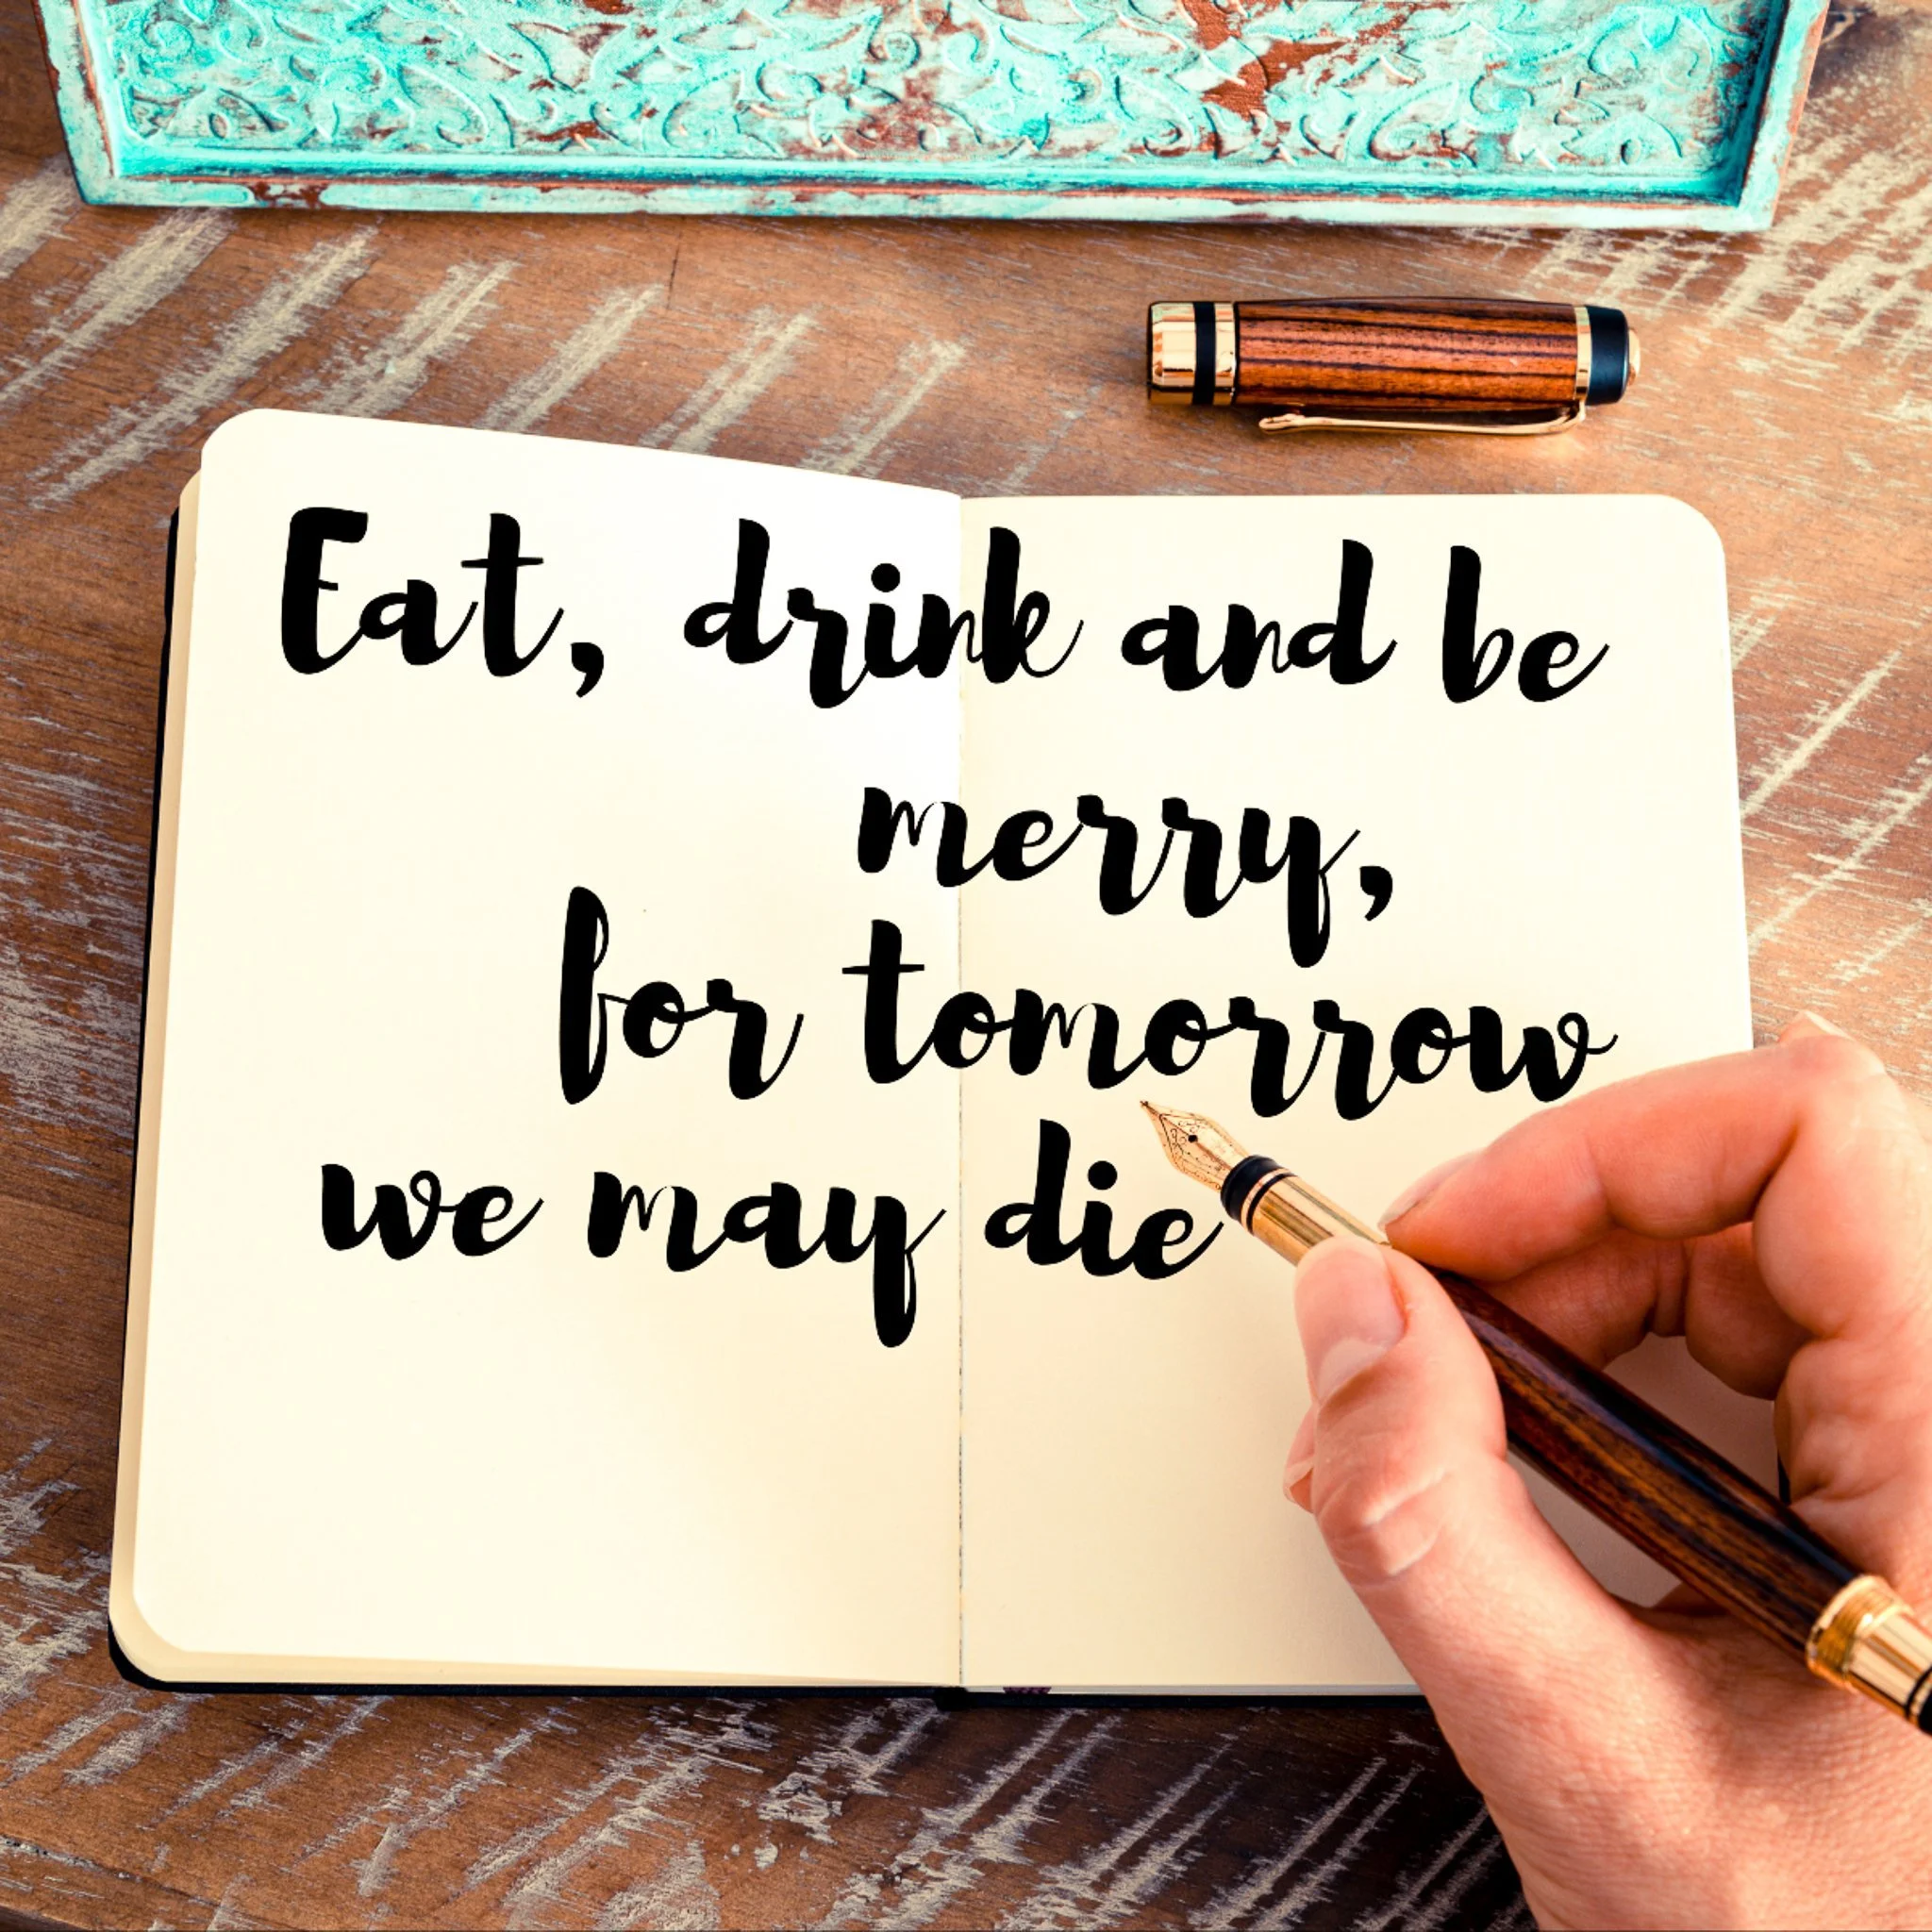 Eat, drink and be
merry,
for tomorrow
we may die